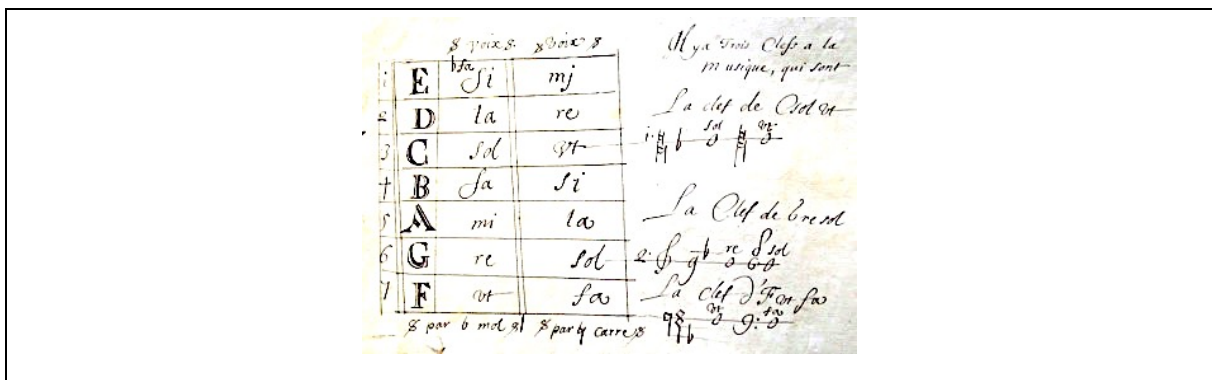 8 voix 8. 8 voix 8
1 E b fa Si mj
2 D la re
3 C sol vt
4 B fa si
5 A mi la
6 G re sol
7 F vt fa
8 par b mol 8 8 par ♮ carre 8
Il y a Trois Clefs a la
musique, qui sont
La clef de C sol vt
1. b sol vt
La Clef de G re sol
2. b re sol
La clef d'F vt fa
b vt fa